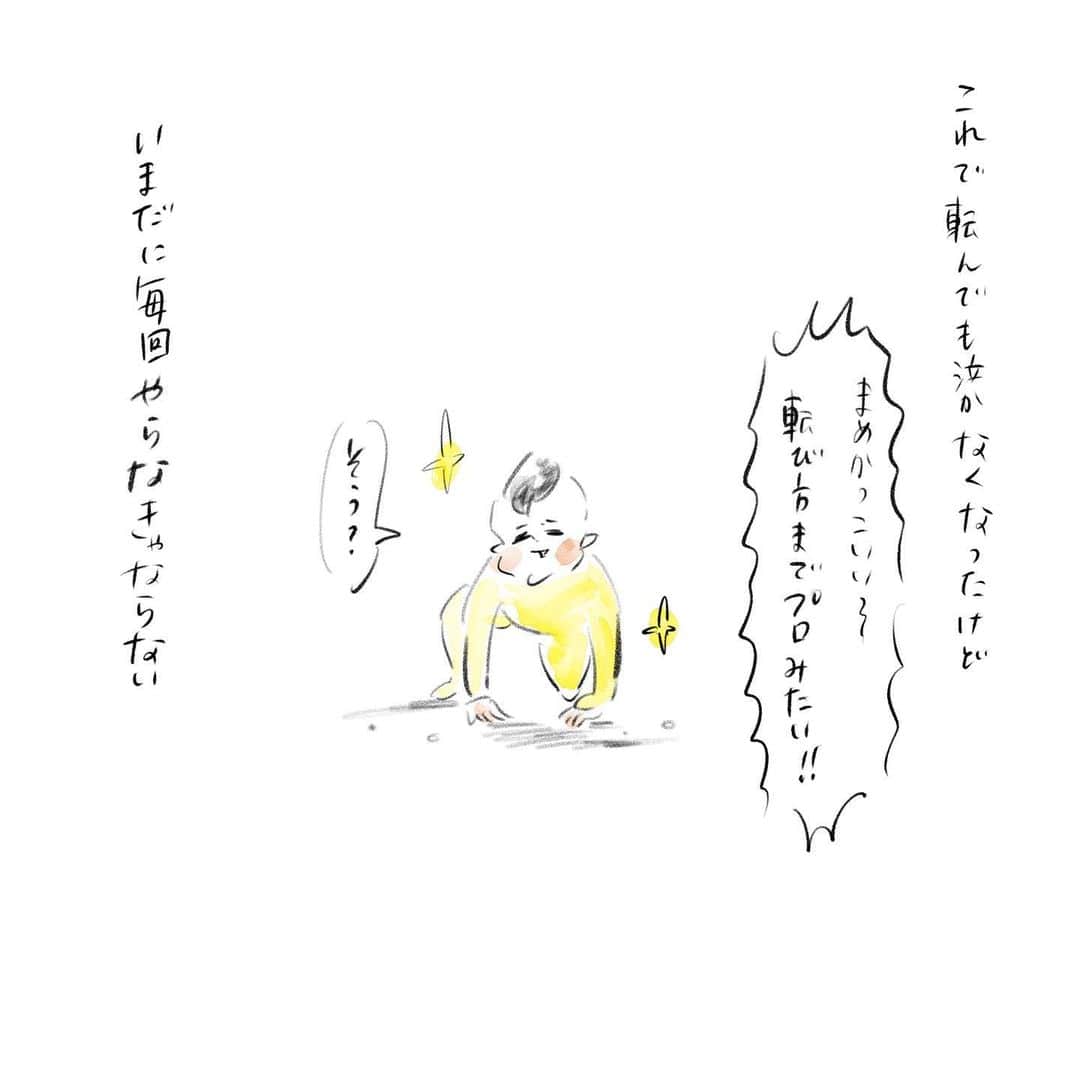 これで転んでも泣かなくなったけど
まめかっこいい〜
転び方までプロみたい!!
そう?
いまだに毎回やらなきゃならない